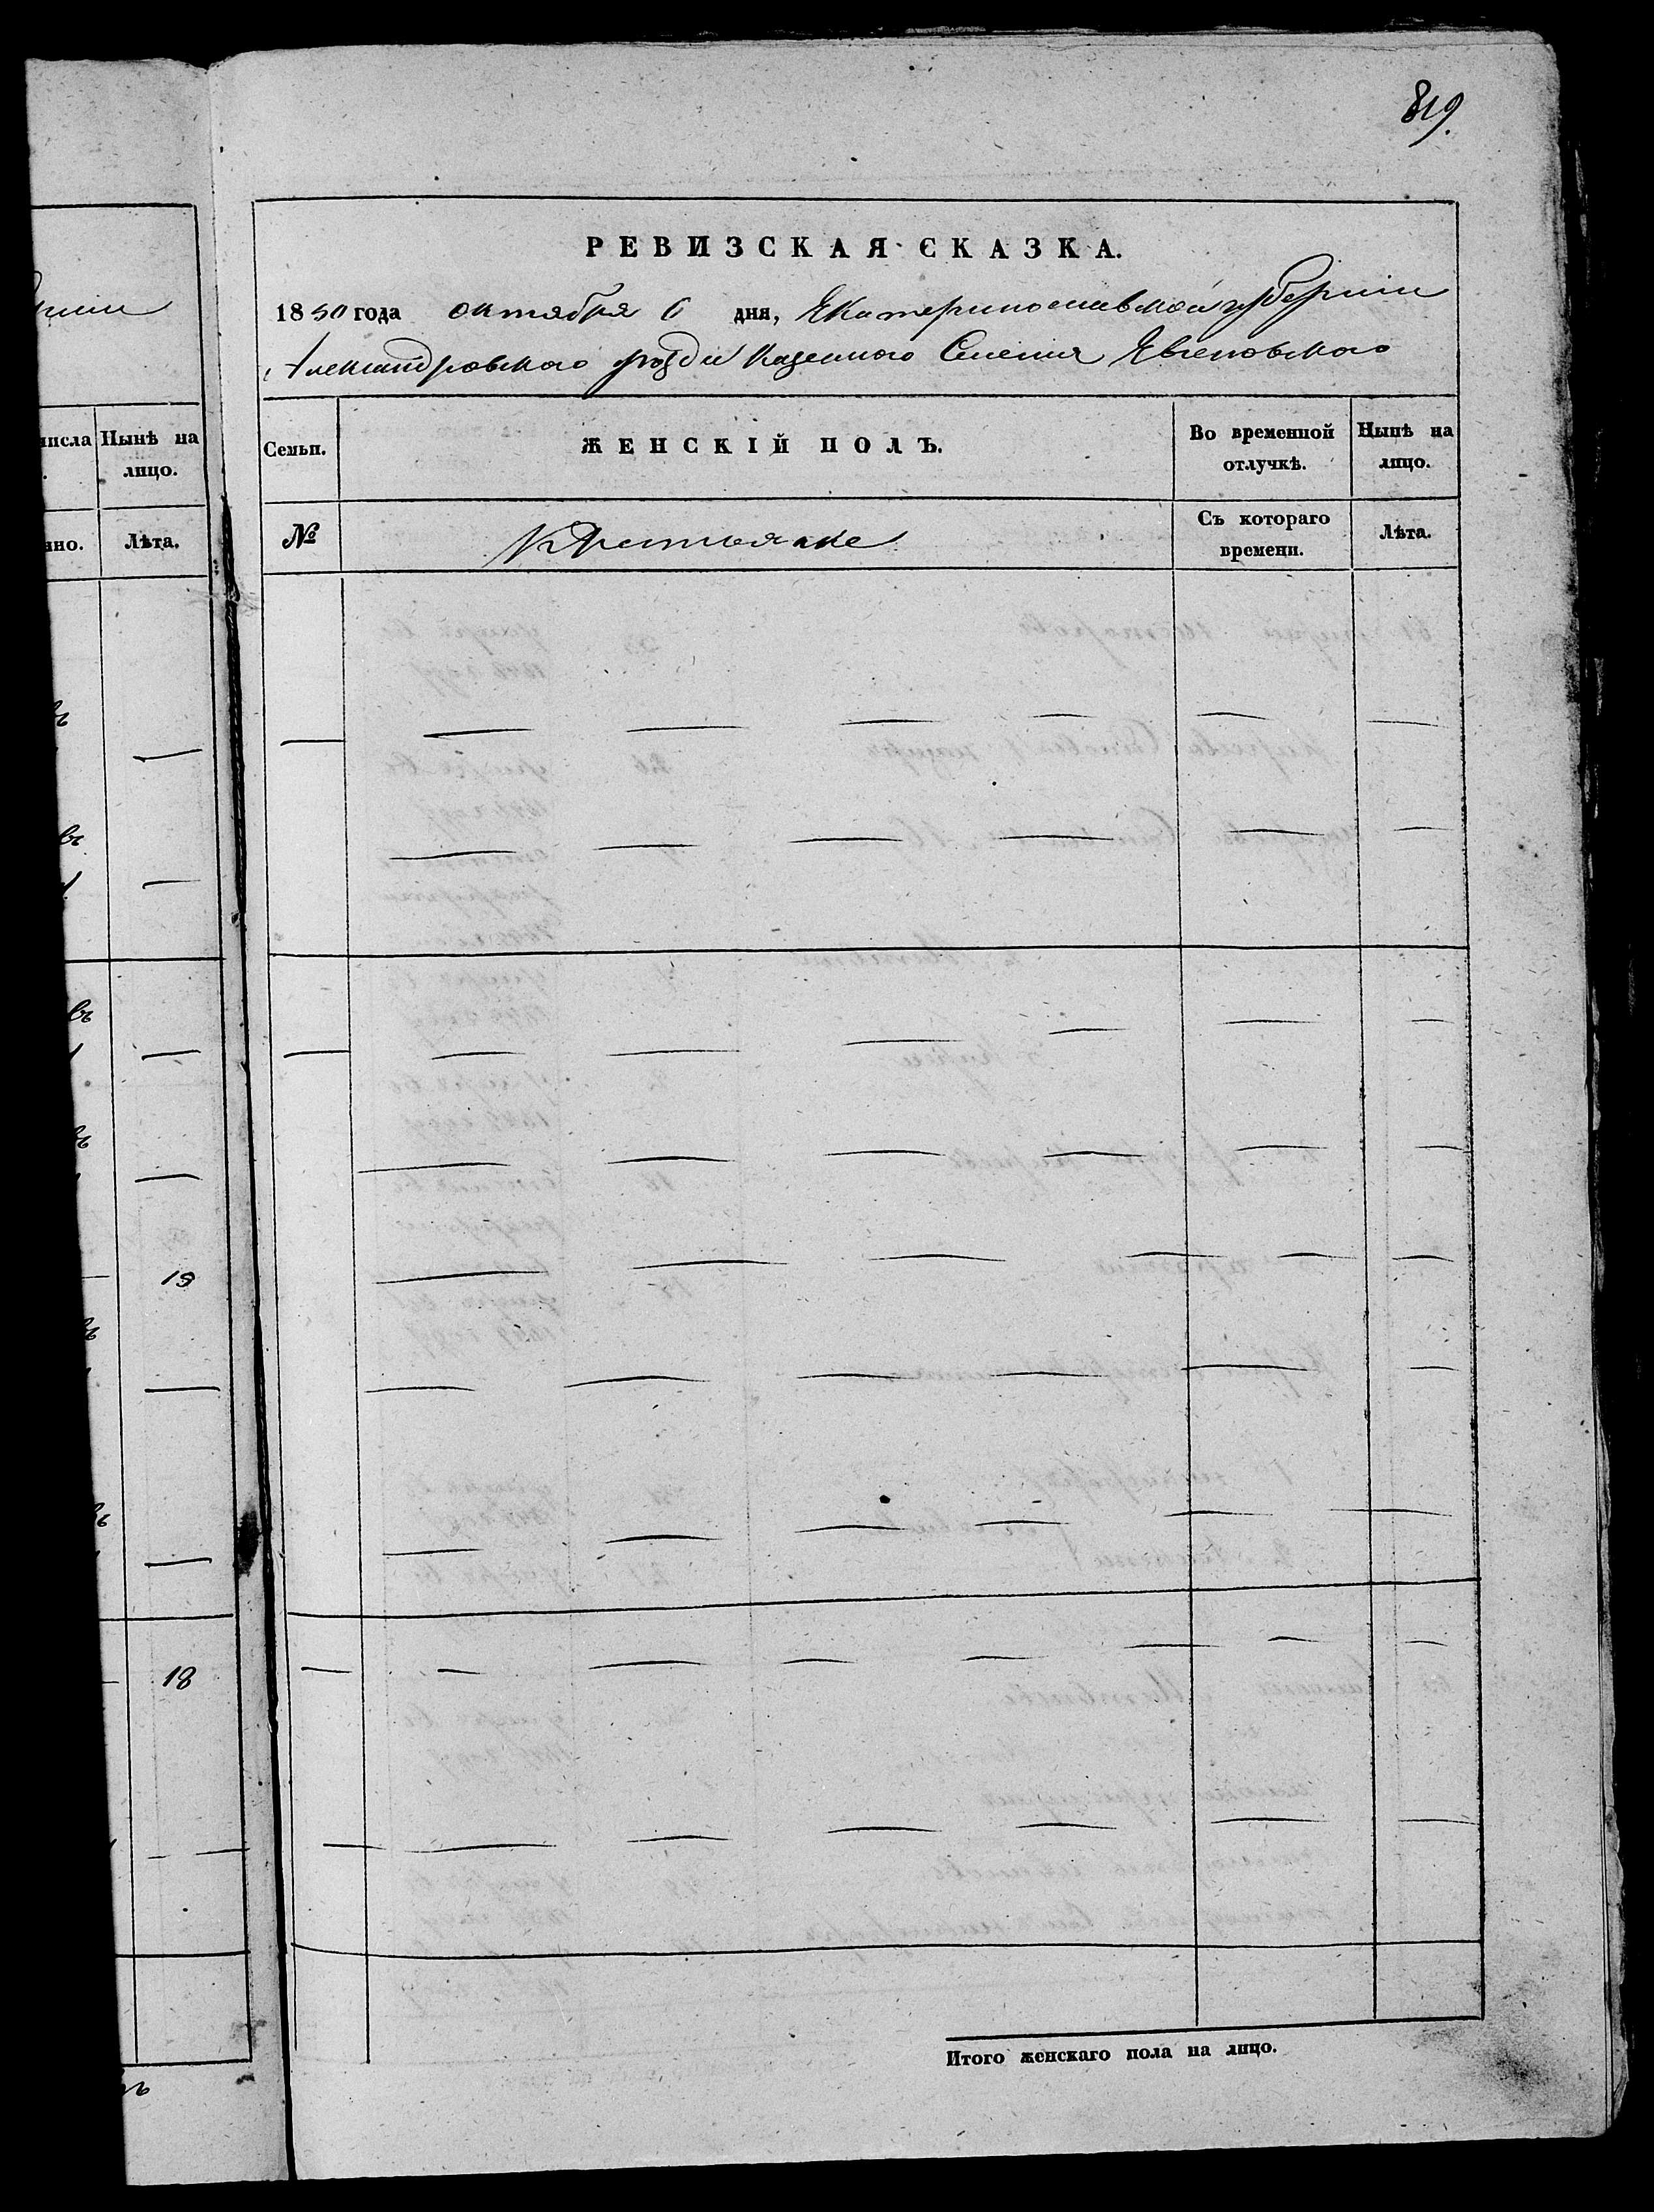 819.
РЕВИЗСКАЯ СКАЗКА.
1850 года октября 6 дня, Екатеринославской губернiи
Александровского уезда казенного Селения Евгеновского
числа
Нынѣ на лицо.
Лѣта.
Семьи.
ЖЕНСКІЙ ПОЛЪ.
Во временной отлучкѣ.
Нынѣ на лицо.
№
Крестьяне
Съ котораго времени.
Лѣта.
въ
въ
въ
въ
19
въ
въ
18
Итого женскаго пола на лицо.